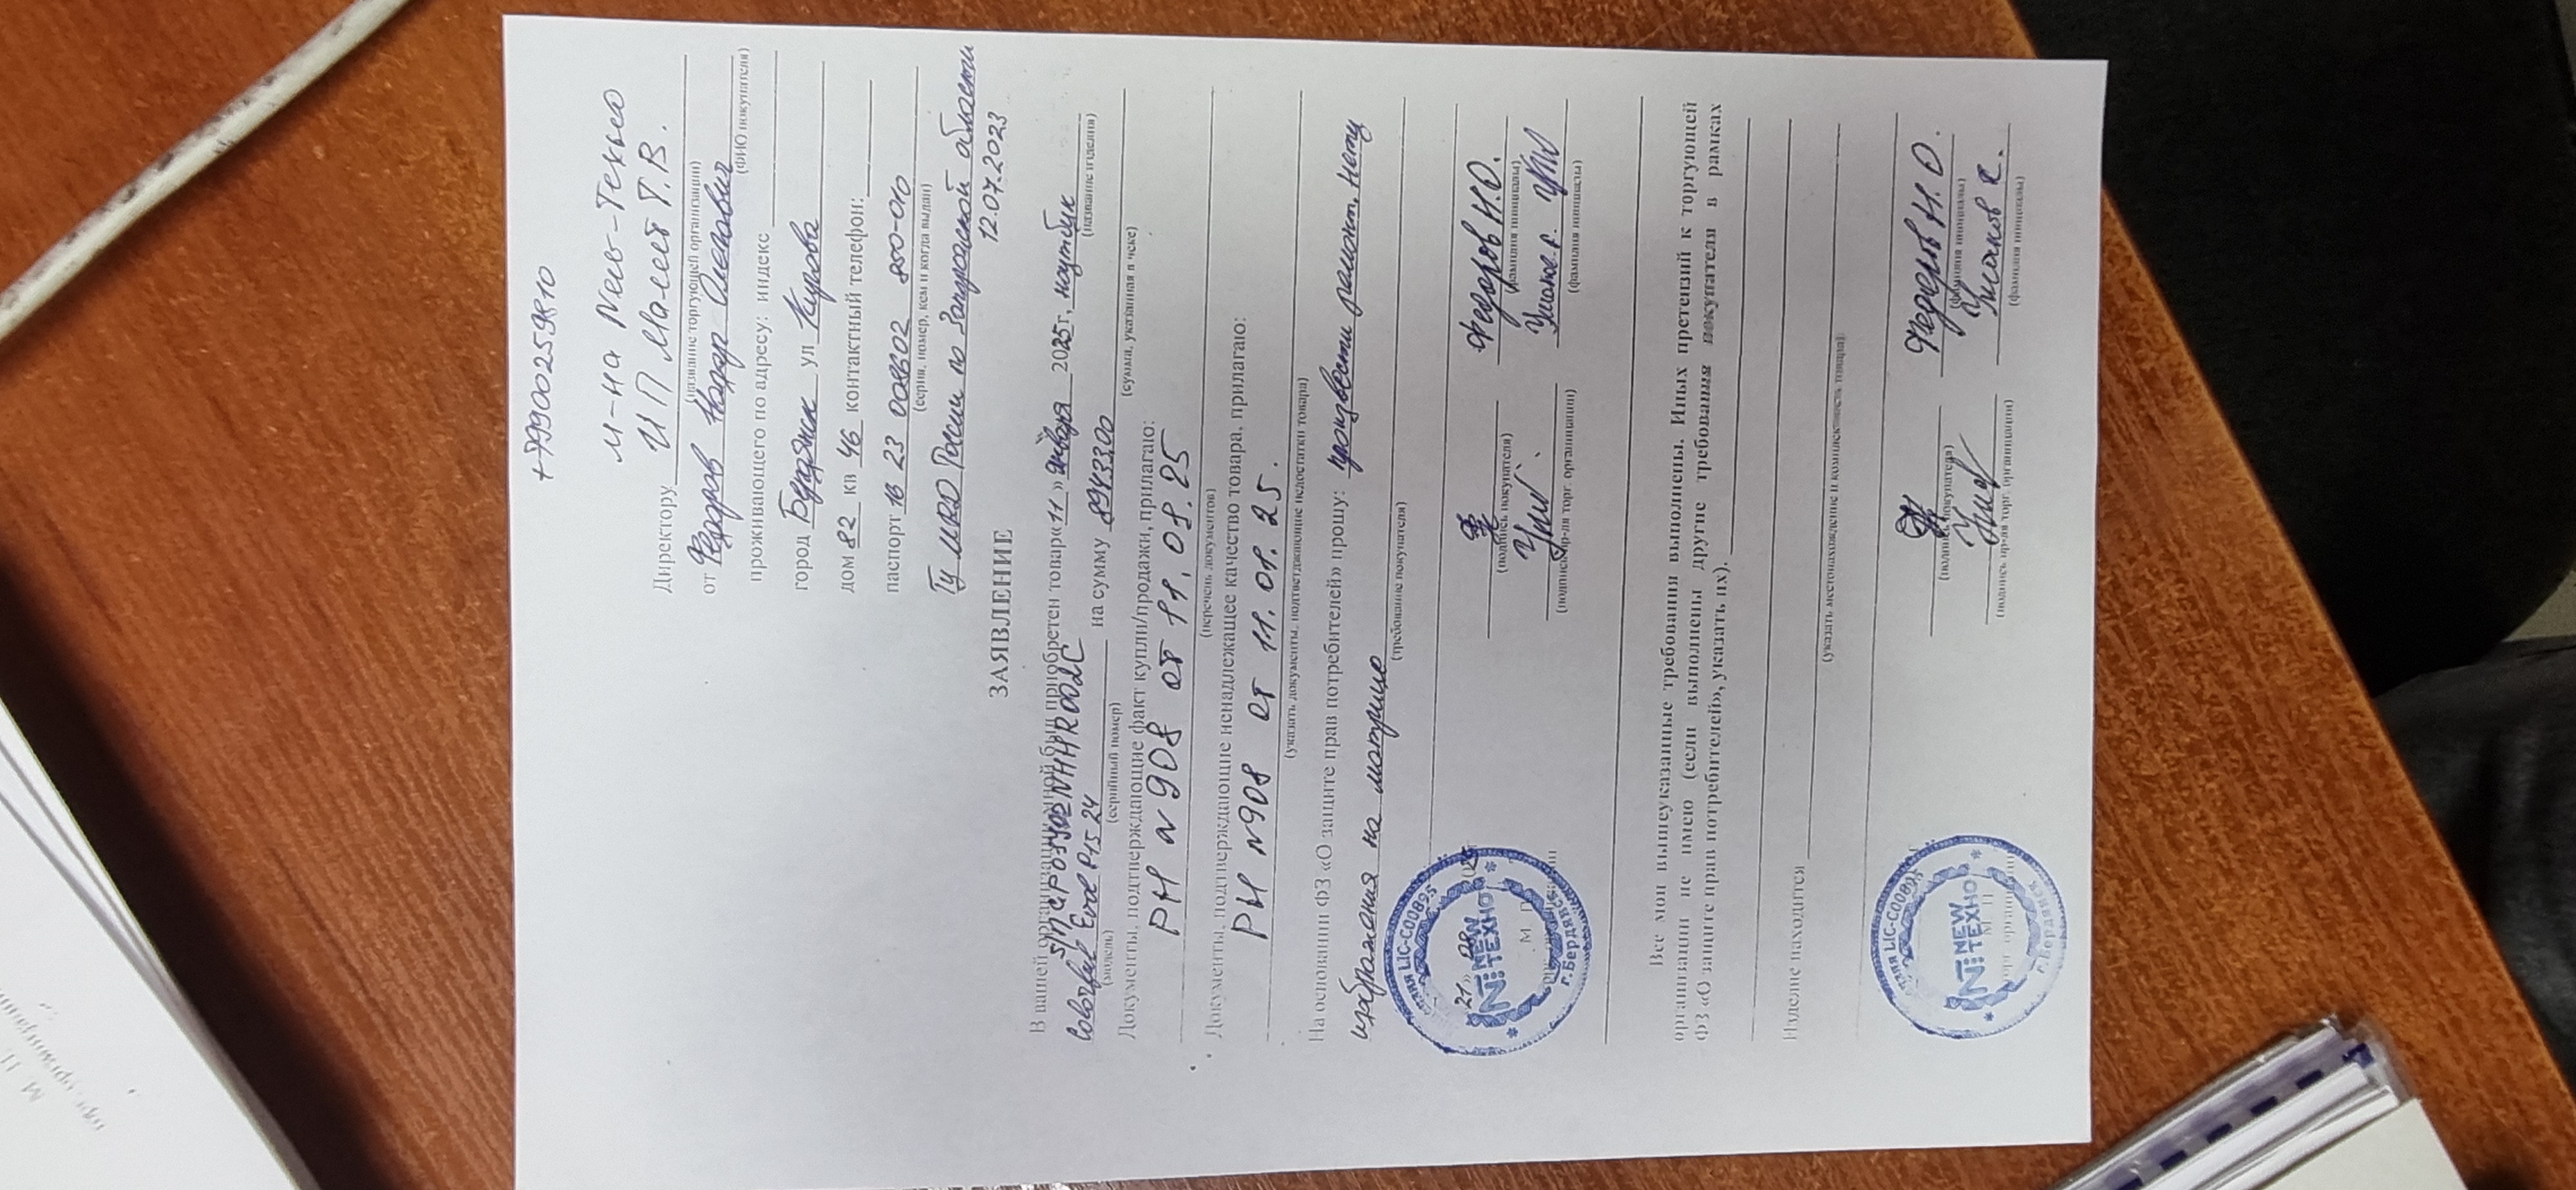 +79900259810
м-на New-Техно
Директору ИП Малеев Т.В.
(название торгующей организации)
от Фёдоров Нодар Олегович
(ФИО покупателя)
проживающего по адресу: индекс
город Бердянск ул Кирова
дом 82 кв 46 контактный телефон:
паспорт 16 23 008802 850-010
(серия, номер, кем и когда выдан)
Гу МВД России по Запорожской области
12.07.2023
ЗАЯВЛЕНИЕ
В вашей организации мной был приобретен товар «11» января 2025г, ноутбук
(название изделия)
Colorful Evol P15 24 на сумму 89433,00
(модель) (серийный номер) (сумма, указанная в чеке)
Документы, подтверждающие факт купли/продажи, прилагаю:
РН N908 от 11.01.25
(перечень документов)
Документы, подтверждающие ненадлежащее качество товара, прилагаю:
РН N908 от 11.01.25.
(указать документы, подтверждающие недостатки товара)
На основании ФЗ «О защите прав потребителей» прошу: произвести ремонт, нету
изображения на матрице
(требование покупателя)
Федоров Н.О.
(подпись покупателя) (фамилия инициалы)
(подпись пр-ля торг. организации) (фамилия инициалы)
21
М. П.
LIC-C00895
NEW ТЕХНО
г.Бердянск
Все мои вышеуказанные требования выполнены. Иных претензий к торгующей
организации не имею (если выполнены другие требования покупателя в рамках
ФЗ «О защите прав потребителей», указать их).
Изделие находится
(указать местонахождение и комплектность товара)
Федоров Н.О.
(подпись покупателя) (фамилия инициалы)
(подпись пр-ля торг. организации) (фамилия инициалы)
М. П.
торг. организации
LIC-C00895
NEW ТЕХНО
г.Бердянск
М. П.